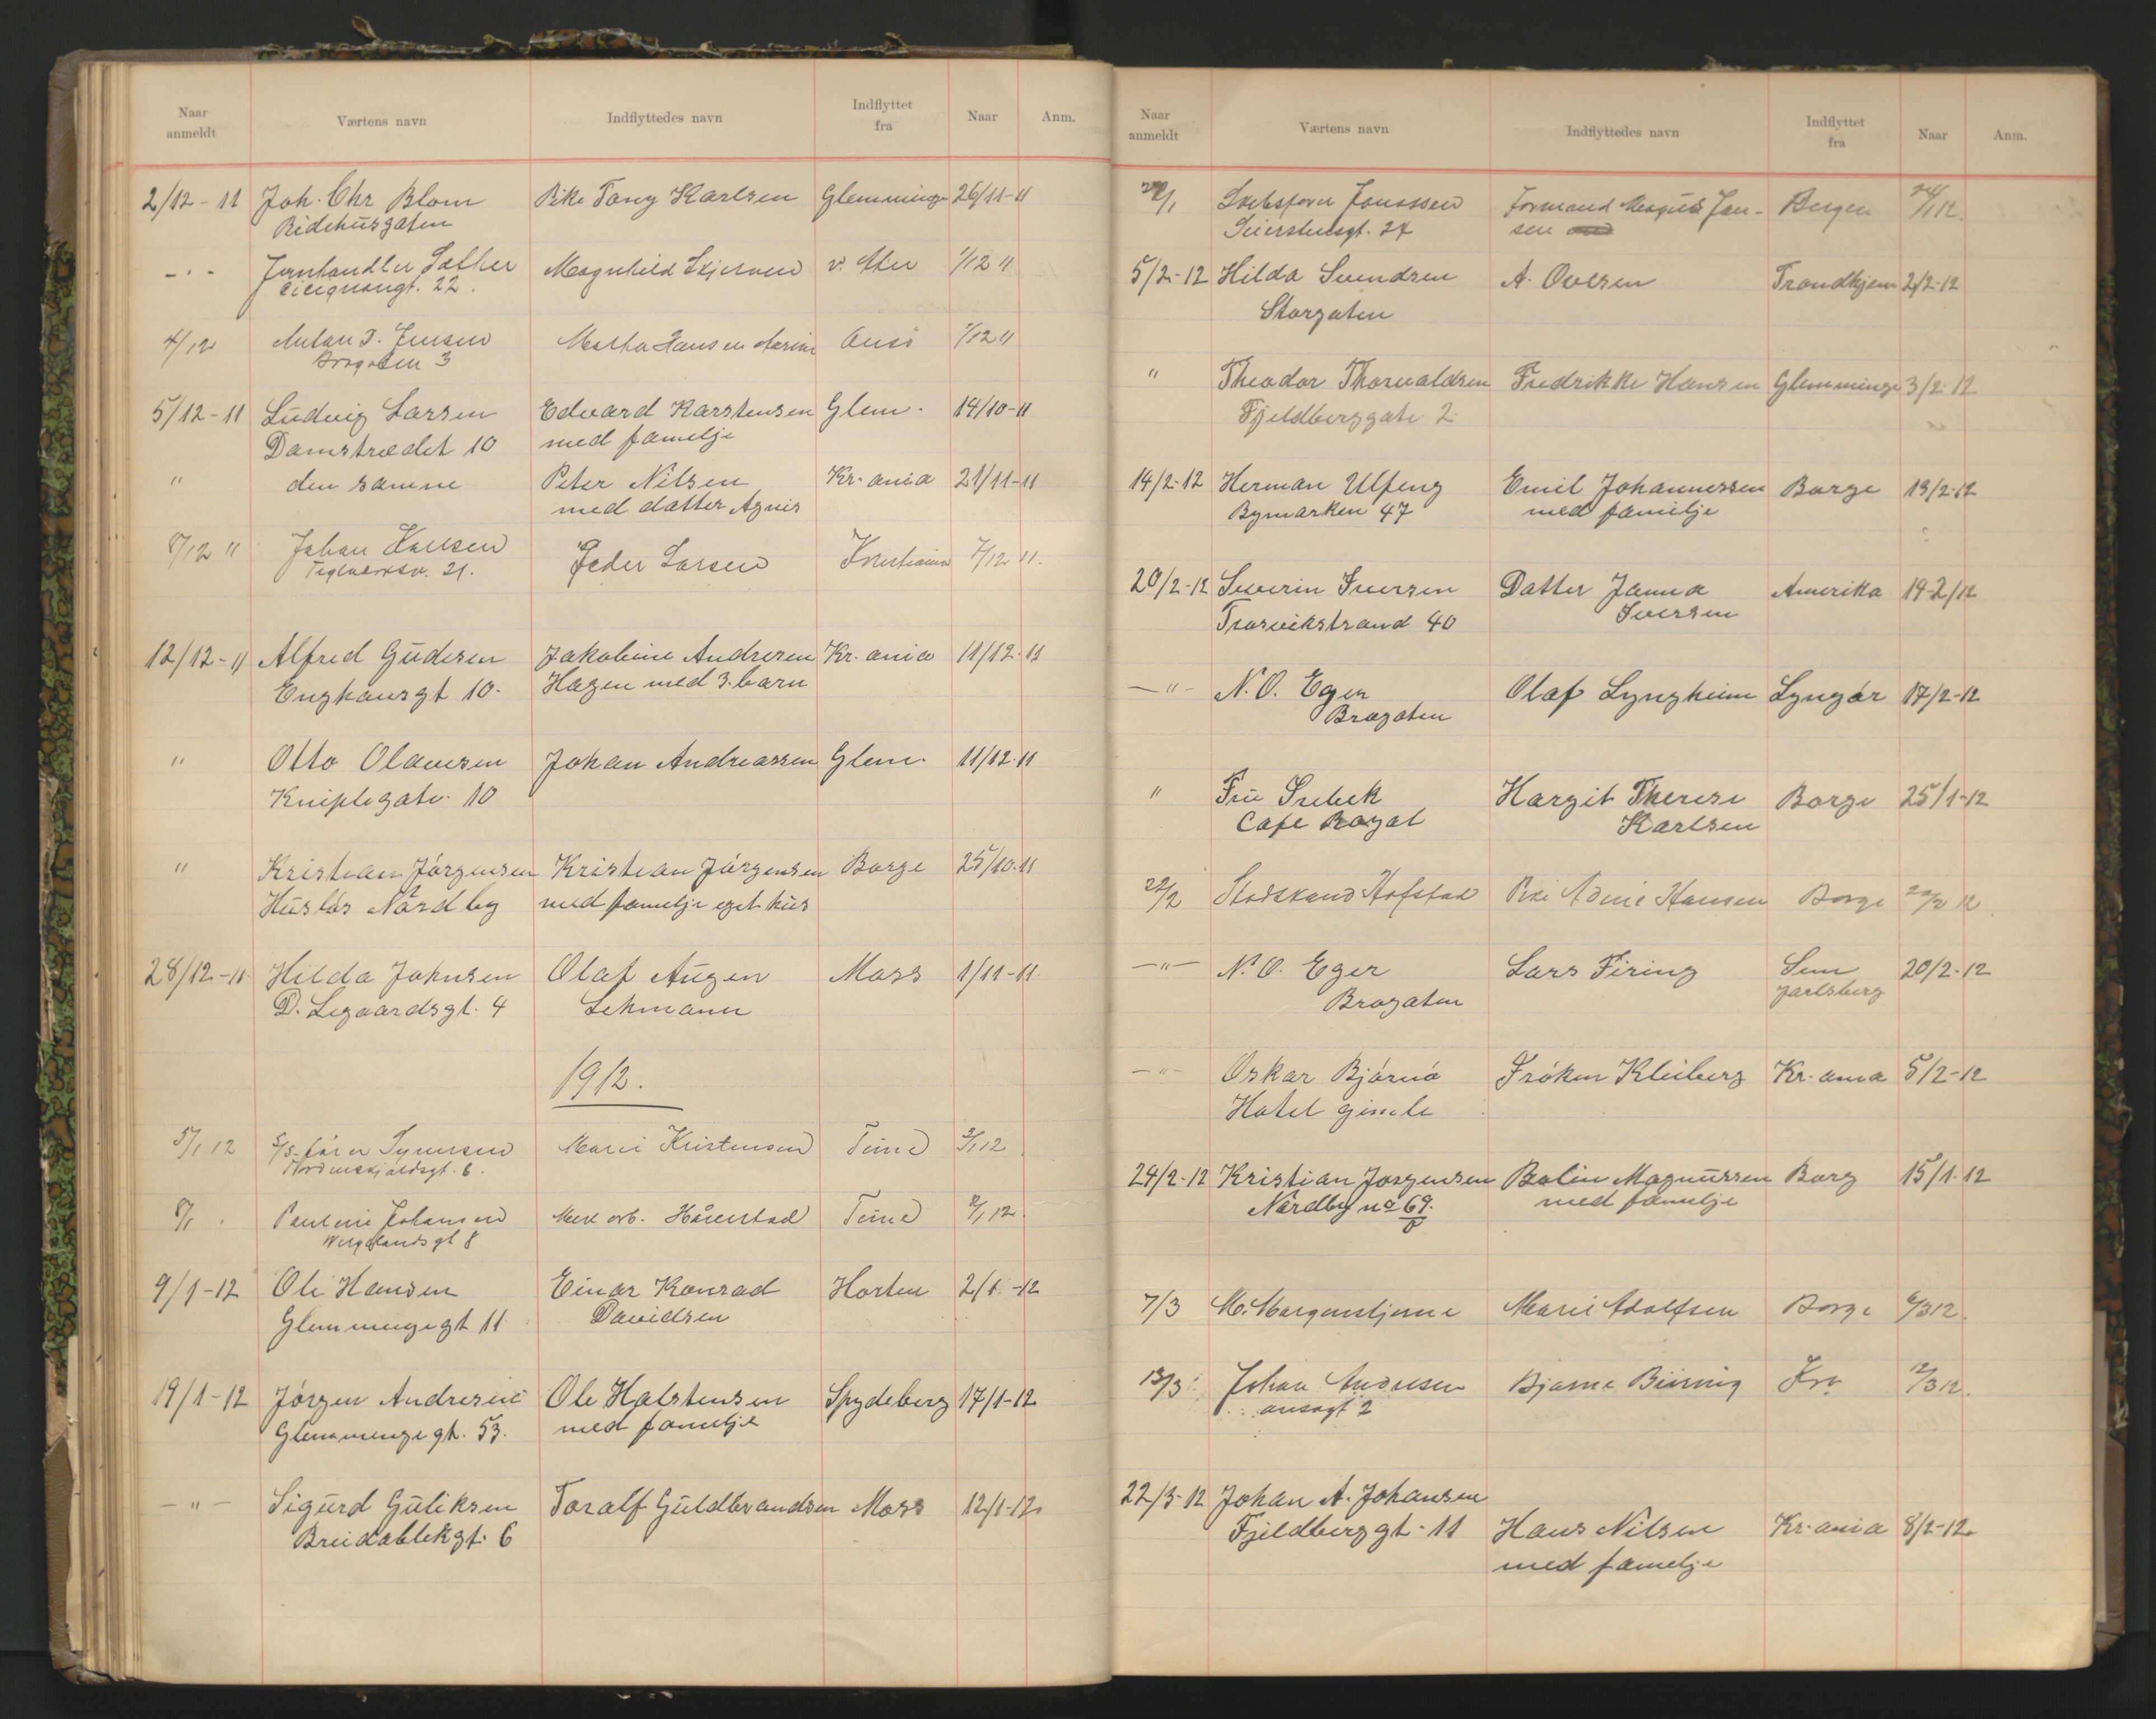 Naar anmeldt Værtens navn Indflyttedes navn Indflyttet fra Naar Anm.
2/12-11 Joh. Chr Blom Pike Tany Karlsen Glemminge 26/11-11
Ridehusgaten
Jernhandler Sather Magnhild v. Aker 1/12 11
22.
4/12 Anton J. Jensen Martha Hansen Onsö 1/12 11
Brogaten 3
5/12-11 Ludvig Larsen Edvard Karstensen Glem. 14/10-11
Damstrædet 10 med familje
" den samme Peter Nilsen Kr.ania 21/11-11
med datter Agnes
8/12 11 Johan Peder Larsen Kristiania 7/12 11.
21.
12/12-11 Alfred Gudesen Jakobine Andresen Kr.ania 11/12-11
10. Hagen med 3. barn
" Otto Olavesen Johan Andreassen Glem. 11/12-11
Kniplegate. 10
" Kristian Jörgensen Kristian Jörgensen Borge 25/10-11
Huslös Nordby med familje eget hus
28/12-11 Hilda Johnsen Olaf Augen Moss 1/11-11.
D. Legaardsgt. 4 Lehmann
1912.
5/1 12 Marie Kristensen Tune 3/1 12
Nordenskjoldsgt. 6.
8/1 Pauline Johansen Tune 8/1 12
Wergelandsgt 8
9/1-12 Ole Hansen Einar Konrad Horten 2/1-12
Glemmengegt 11 Davidsen
19/1-12 Jörgen Andresen Ole Halstensen Spydeberg 17/1-12
Glemmengegt. 53. med familje
-"- Sigurd Guliksen Toralf Guldbrandsen Moss 12/1-12
Breidablekgt. 6
Naar anmeldt Værtens navn Indflyttedes navn Indflyttet fra Naar Anm.
Jonassen Formand Magnus Jan- Bergen
Seierstensgt. 27 sen
5/2-12 Hilda Svendsen A. Ovesen Trondhjem 2/2-12
Storgaten
" Theodor Thorvaldsen Fredrikke Hansen Glemminge 3/2-12
Fjeldberggate 2
14/2-12 Herman Ulfeng Emil Johannessen Borge 13/2-12
Bymarken 47 med familje
20/2-12 Severin Iversen Datter Janna Amerika 19-2/12
Trosvikstrand 40 Iversen
-"- N.O. Eger Olaf Lyngheim Lyngör 17/2-12
Brogaten
" Fru Srebek Hargit Therese Borge 25/1-12
Cafe Royal Karlsen
22/2 Hofstad Hansen Borge 20/2 12
-"- N.O. Eger Lars Firing Sem 20/2-12
Brogaten Jarlsberg
-"- Oskar Bjørnö Fröken Kleiberg Kr.ania 5/2-12
Hotel gimle
24/2-12 Kristian Jorgensen Bolin Magnussen Borg 15/1-12
Nordby no 69. med familje
7/3 M. Morgenstjerne Marie Adolfsen Borge 6/3 12.
13/3 Johan Andresen Bjarne Kra 12/3 12.
2
22/3-12 Johan A. Johansen
Fjeldberggt. 11 Hans Nilsen Kr.ania 8/2-12
med familje